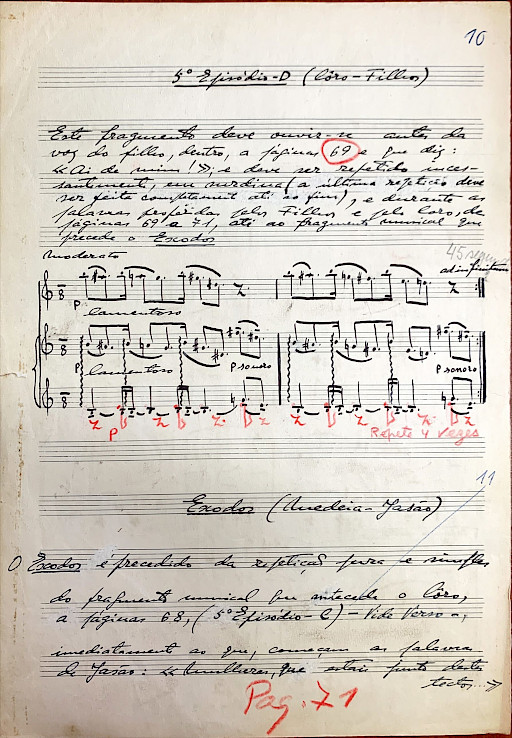 10
5º Episódio-D (Côro-Filhos)
Este fragmento deve ouvir-se antes da
voz do filho, dentro, a páginas 69 e que diz:
«Ai de mim!»; e deve ser repetido inces-
santemente, em surdina (a última repetição deve
ser feita completamente até ao fim), e durante as
palavras proferidas pelos Filhos e pelo Coro, de
páginas 69 a 71, até ao fragmento musical que
precede o Exodos
moderato
45 segundos
ad infinitum
P lamentoso
P lamentoso
P sonoro
P sonoro
P
Repete 4 vezes
11
Exodos (Medeia-Jasão)
O Exodos é precedido da repetição pura e simples
do fragmento musical que antecede o Côro,
a páginas 68, (5º Episódio-C) - Vide Verso -,
imediatamente ao que, começam as palavras
de Jasão: «Mulheres, que estais junto destes
tectos...»
Pag. 71